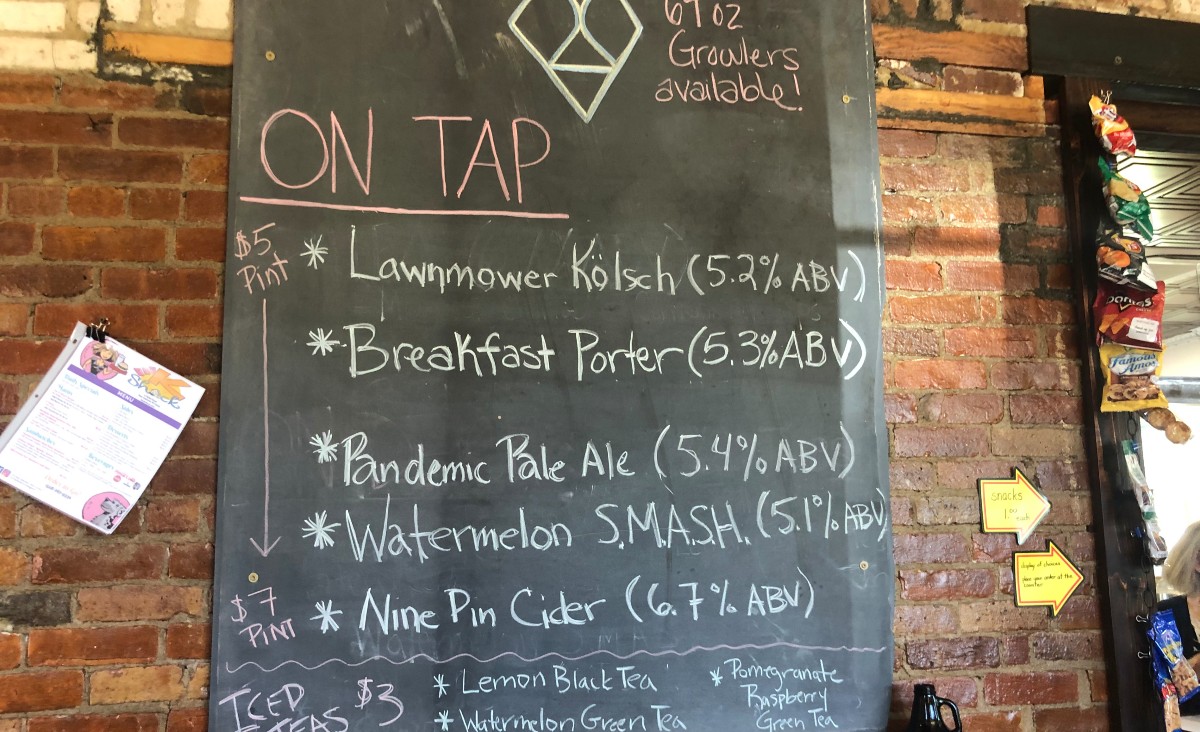 Growlers
available!
ON TAP
$5
Pint
* Lawnmower Kölsch (5.2% ABV)
* Breakfast Porter (5.3% ABV)
* Pandemic Pale Ale (5.4% ABV)
* Watermelon S.M.A.S.H. (5.1% ABV)
$7
PINT
* Nine Pin Cider (6.7% ABV)
ICED
TEAS
$3
* Lemon Black Tea
* Watermelon Green Tea
* Pomegranate
Raspberry
Green Tea
MENU
Doritos
Famous
Amos
snacks